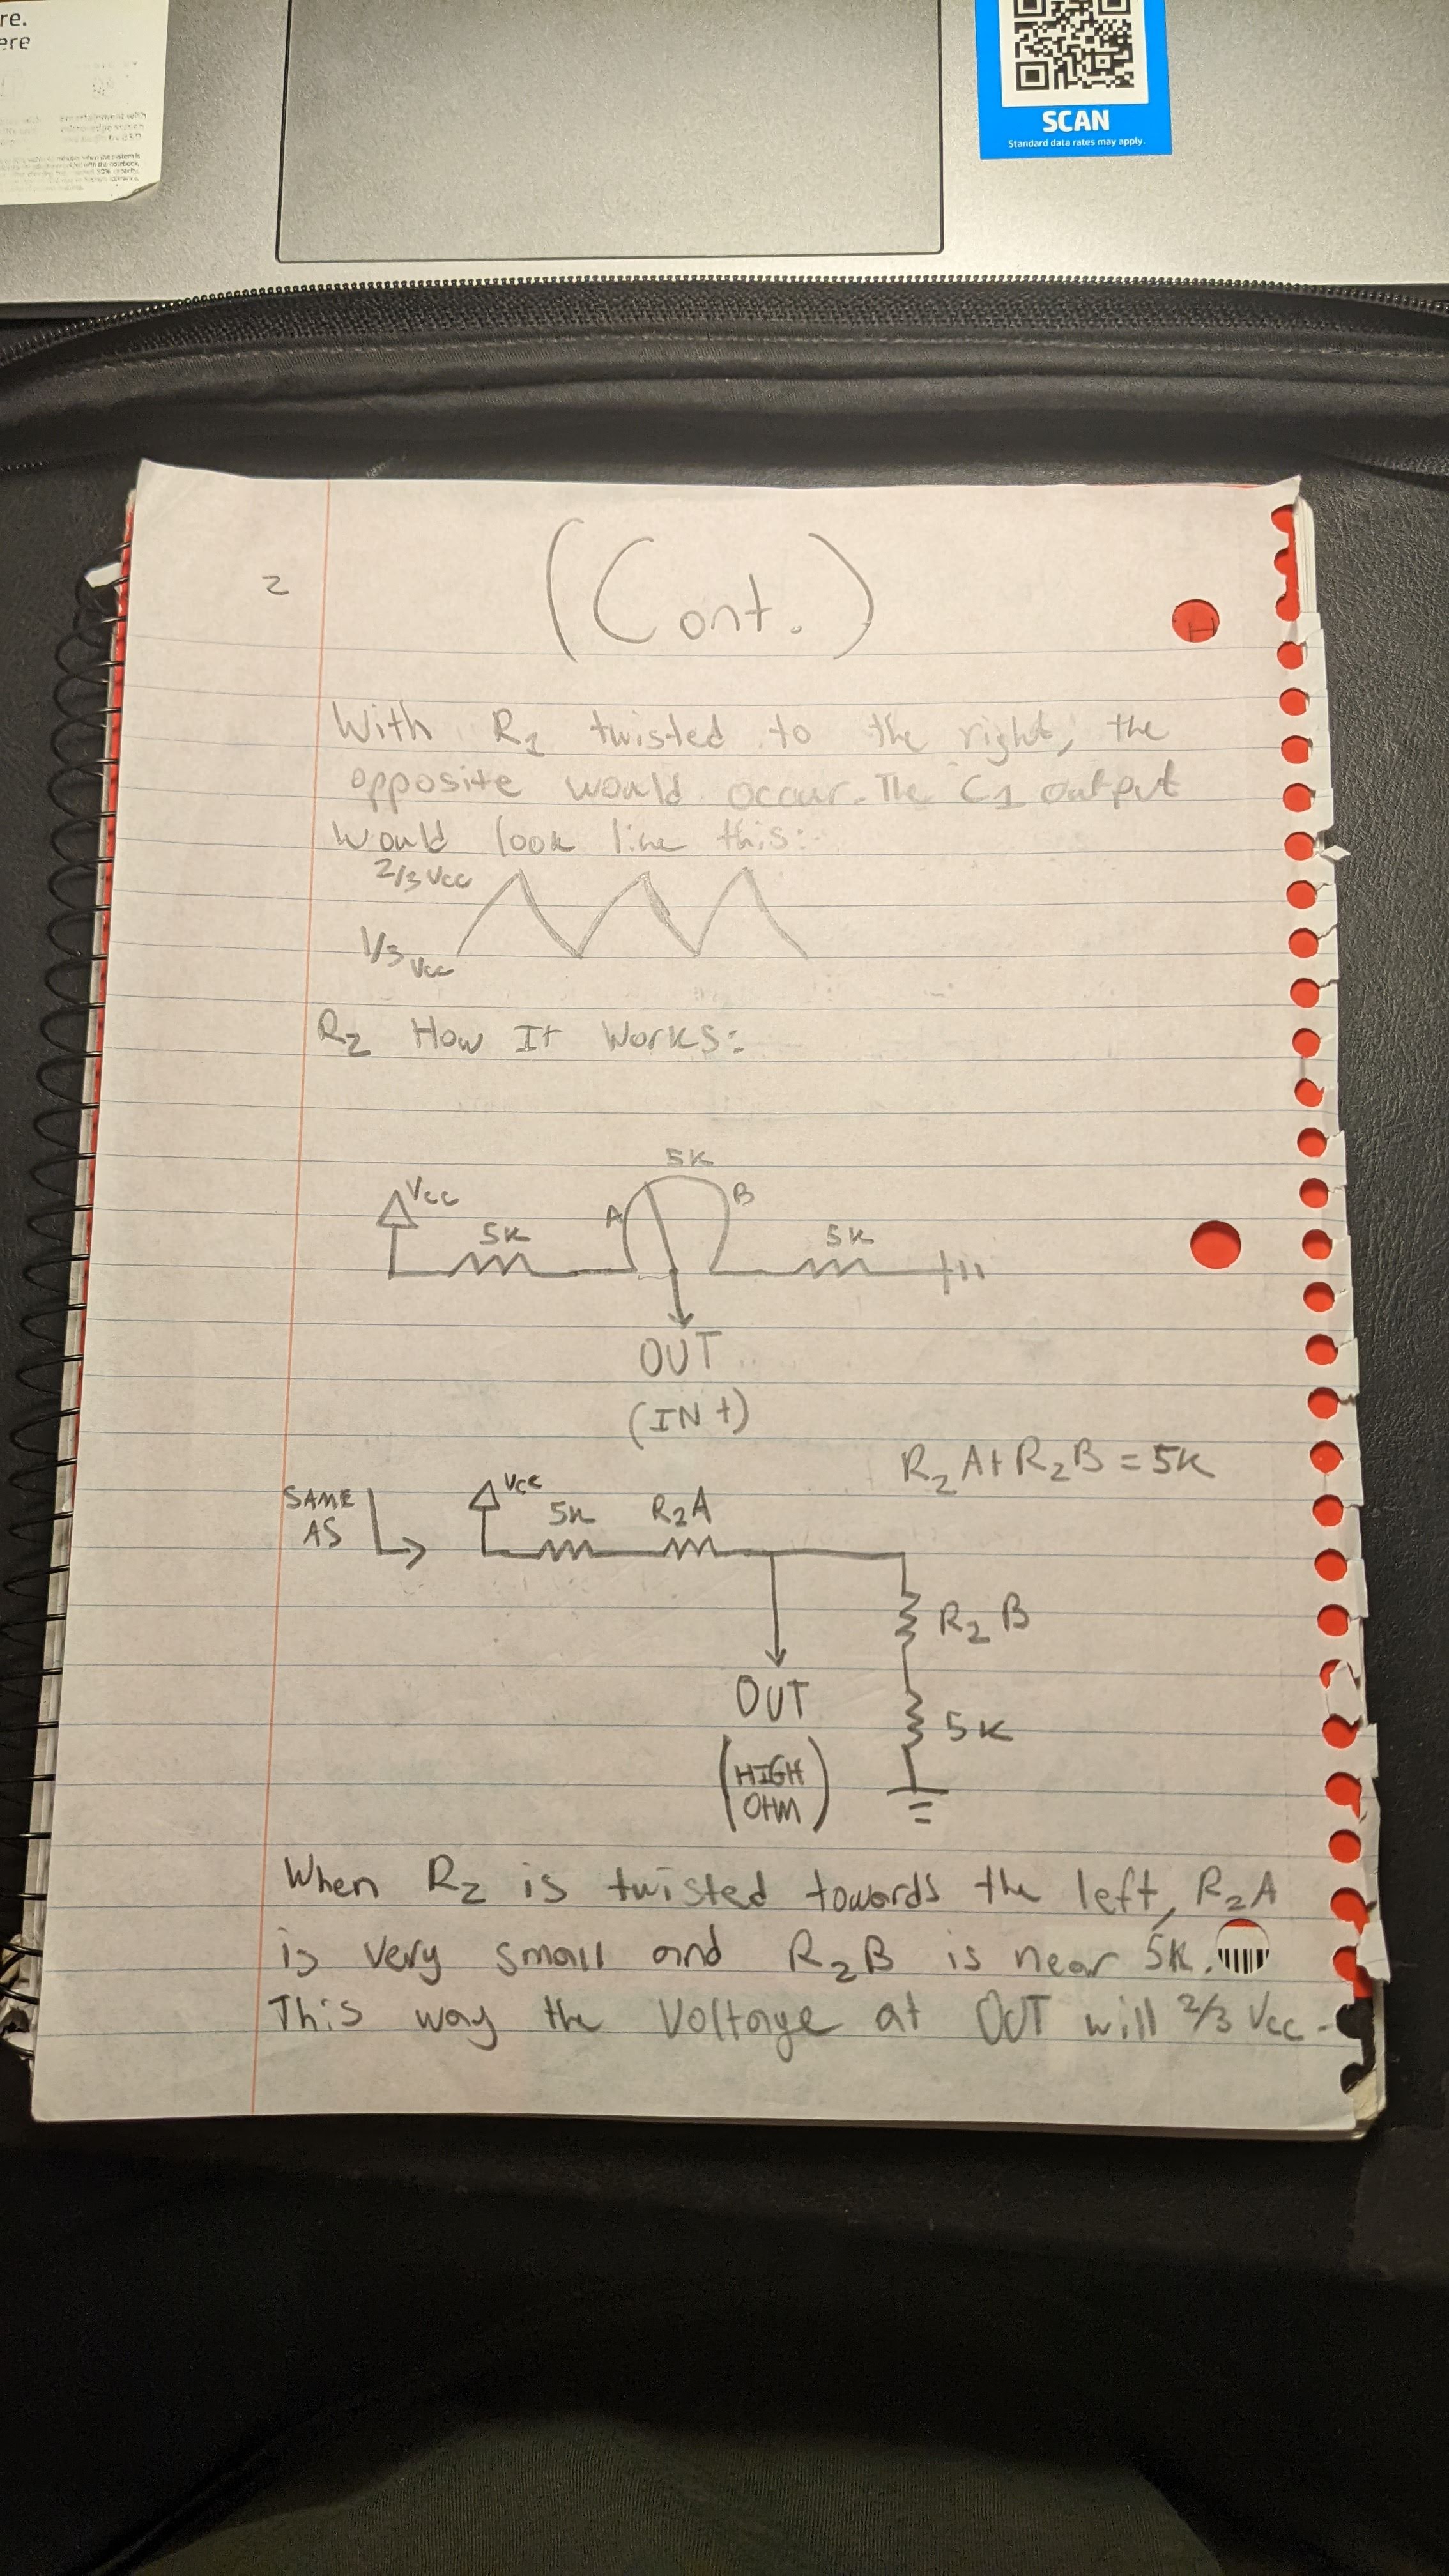 re.
ere
SCAN
Standard data rates may apply.
2
(Cont.)
With R1 twisted to the right, the
opposite would occur. The C1 output
would look like this:
2/3 Vcc
1/3 Vcc
R2 How It Works:
5K
Vcc
A
B
5K
5K
OUT
(IN+)
R2A+R2B=5K
SAME
AS
Vcc
5K
R2A
R2B
OUT
5K
(HIGH
OHM)
When R2 is twisted towards the left, R2A
is very small and R2B is near 5K.
This way the Voltage at OUT will 2/3 Vcc.